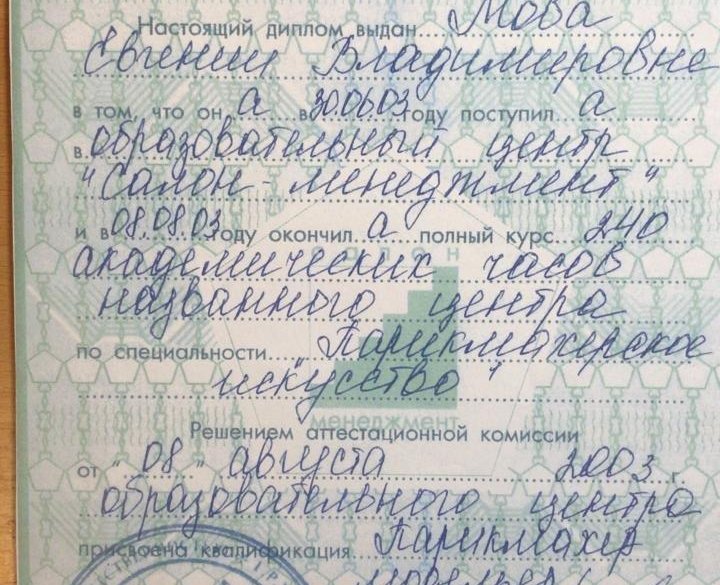 Настоящий диплом выдан Мова
Евгении Владимировне
в том, что он а в 30.06.03 году поступил а
в образовательный центр
"Салон-менеджмент"
и в 08.08.03 году окончил а полный курс 240
академических часов
названного центра
по специальности "Парикмахерское
искусство"
менеджмент
Решением аттестационной комиссии
от "08" августа 2003 г.
образовательного центра
присвоена квалификация Парикмахер
модельер